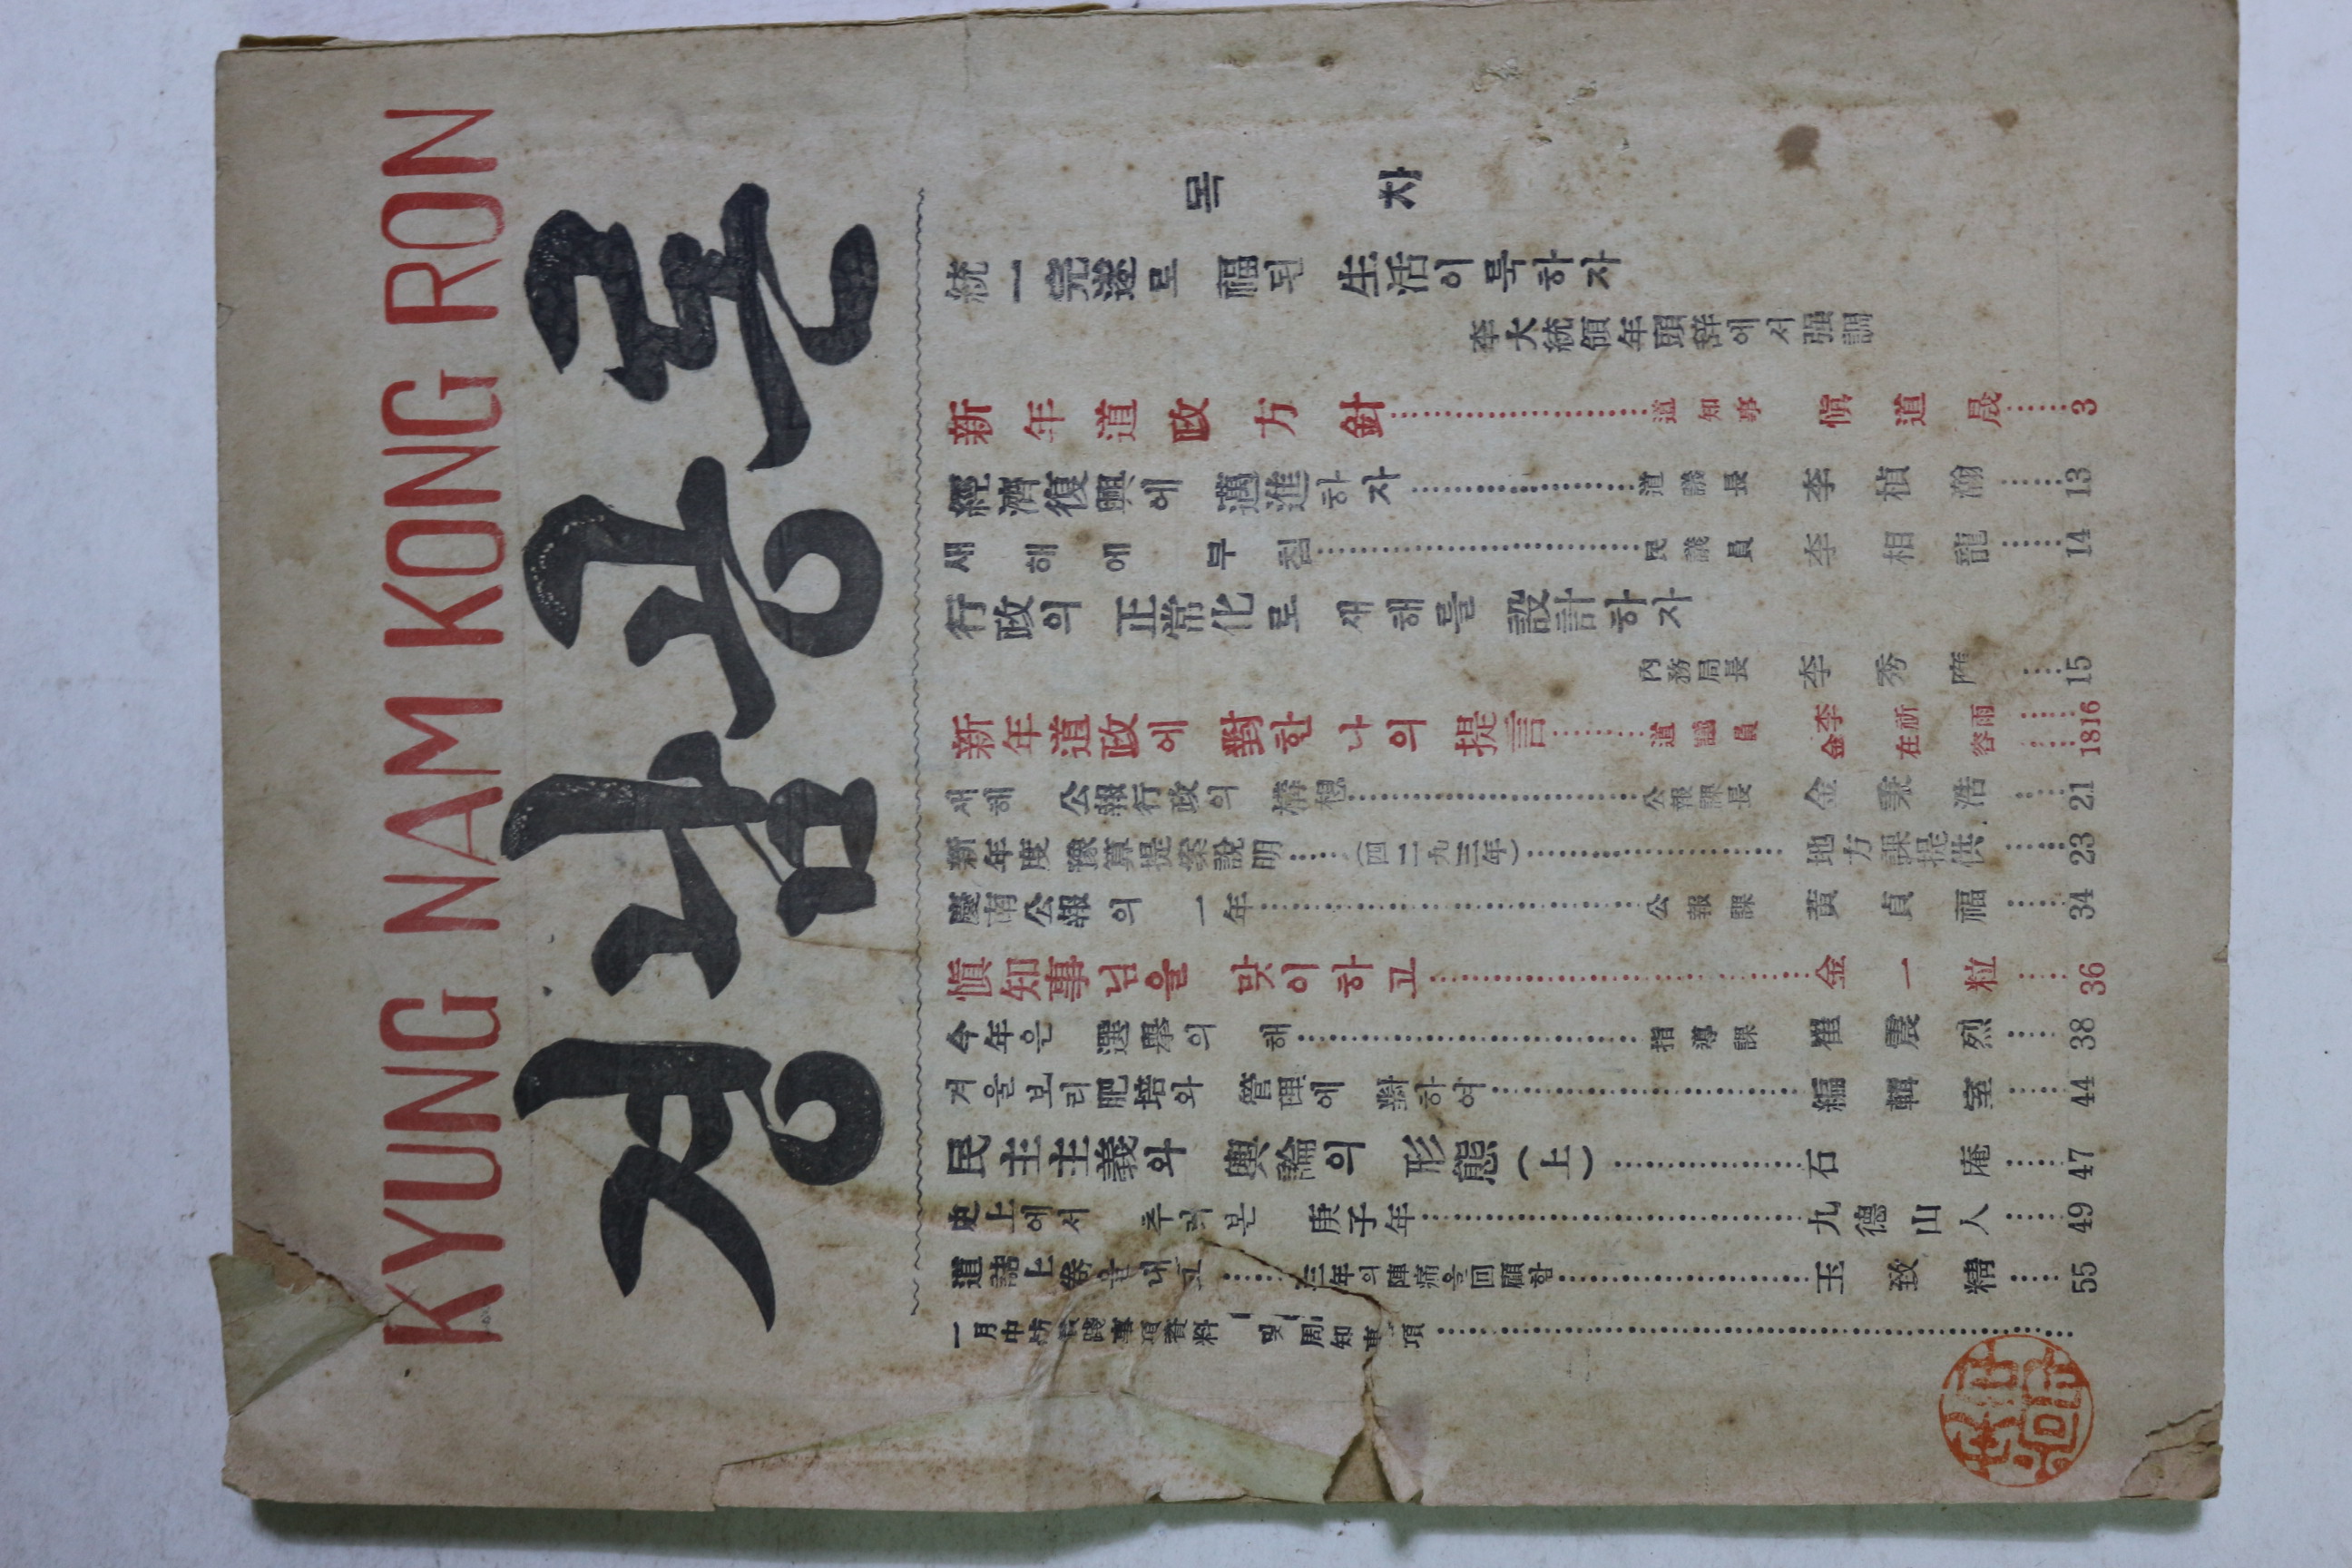 KYUNG NAM KONG RON
경남공론
목 차
統一完遂로 福된 生活이룩하자
李大統領年頭辞에서强調
新年道政方針……道知事 愼道晟……3
經濟復興에 邁進하자……道議長 李槙瀚……13
새해에 부침……民議員 李相龍……14
行政의 正常化로 새해를 設計하자
內務局長 李秀……15
新年道政에 對한 나의 提言……道議員 李祈雨……16
金在容……18
새해 公報行政의 構想……公報課長 金秉浩……21
新年度豫算提案說明……(四二九三年)……地方課提供……23
慶南公報의 一年……公報課 黃貞福……34
愼知事님을 맞이하고……金一粒……36
今年은 選擧의 해……指導課 崔震烈……38
겨울보리肥培와 管理에 對하여……編輯室……44
民主主義와 輿論의 形態(上)……石庵……47
史上에서 추려본 庚子年……九德山人……49
道誌上卷을내고……三年의陣痛을回顧함……玉致精……55
一月中 實踐事項資料 및 周知事項……